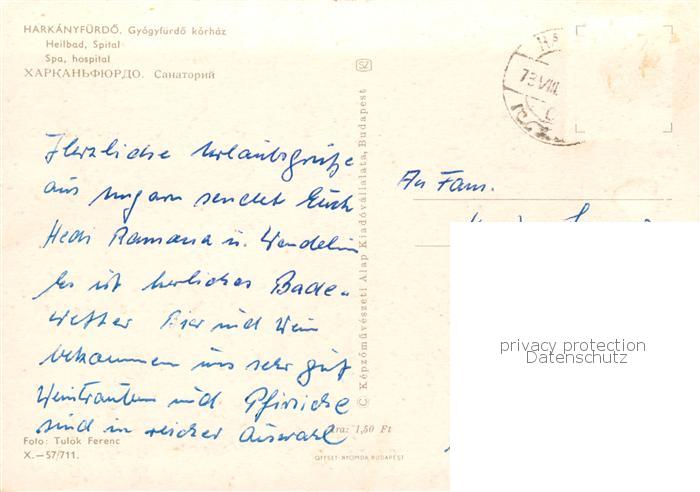 HARKÁNYFÜRDŐ. Gyógyfürdő kórház
Heilbad, Spital
Spa, hospital
ХАРКАНЬФЮРДО. Санаторий
Herzliche Urlaubsgrüße
aus Ungarn sendet Euch
Hedi Ramana u. Wendelin
Es ist herliches Bade-
wetter Bier und Wein
bekommen uns sehr gut
Weintrauben und Pfirsiche
sind in reicher Auswahl
Foto: Tulok Ferenc
X.—57/711.
Ára: 1,50 Ft
OFFSET-NYOMDA BUDAPEST
© Képzőművészeti Alap Kiadóvállalata, Budapest
SZ
73 VIII.
An Fam.
privacy protection
Datenschutz